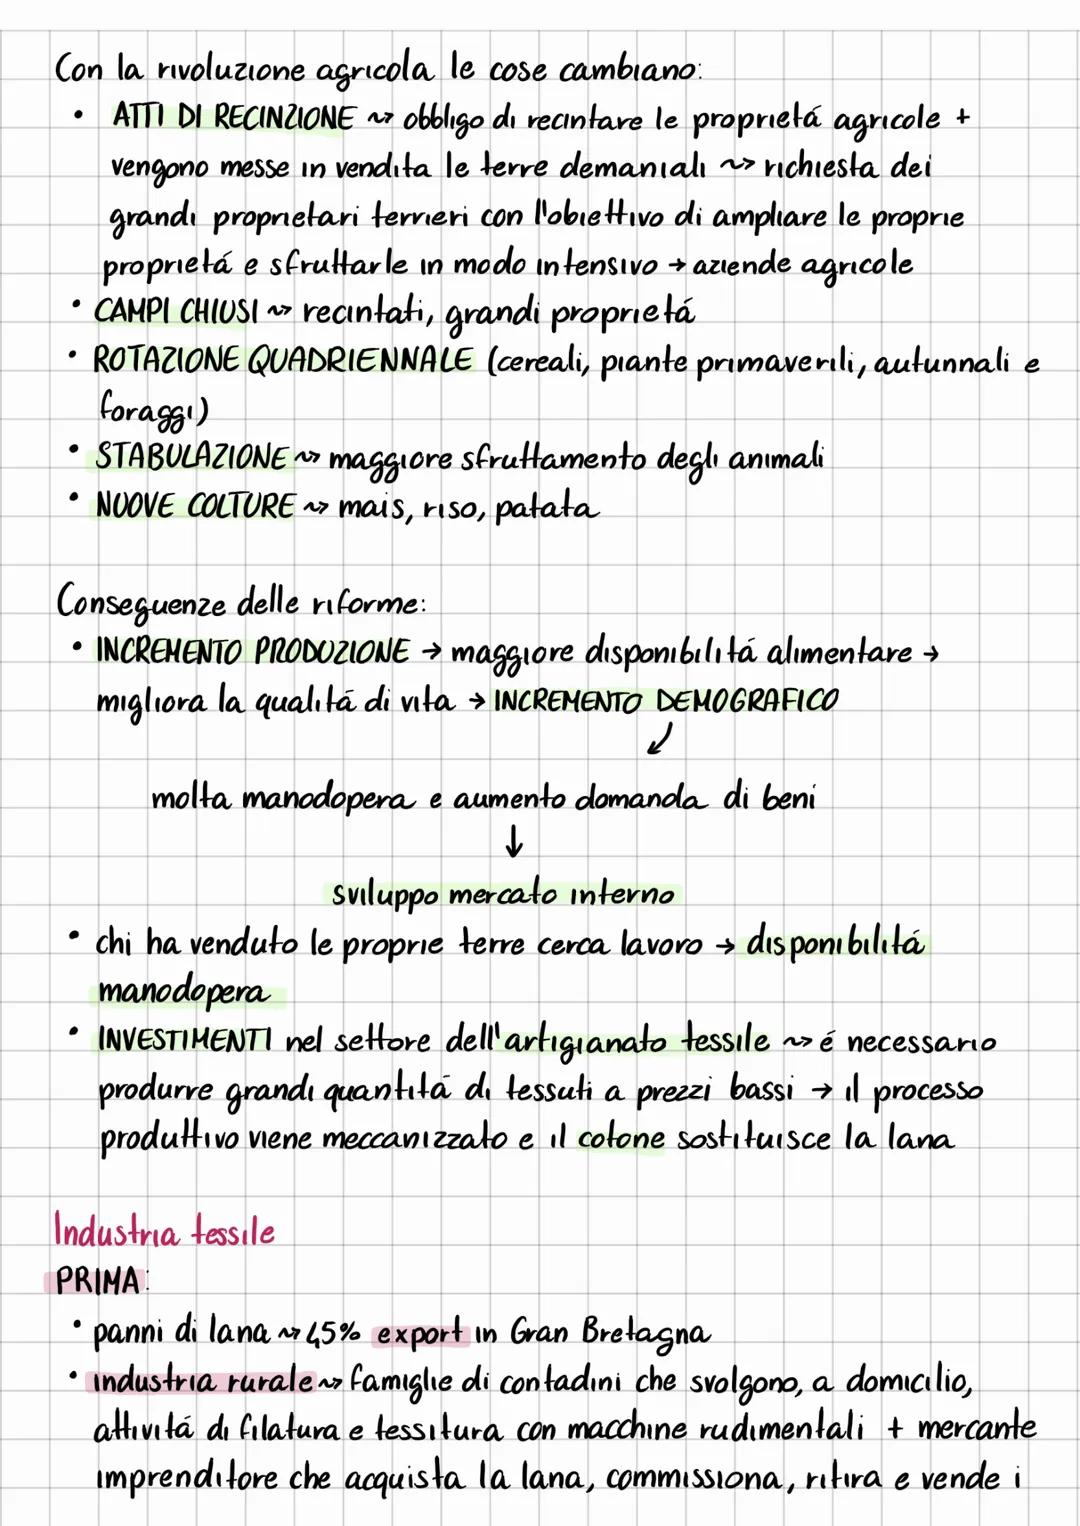 Con la rivoluzione agricola le cose cambiano:
• ATTI DI RECINZIONE ~> obbligo di recintare le proprietá agricole +
vengono messe in vendita le terre demaniali ~> richiesta dei
grandi proprietari terrieri con l'obiettivo di ampliare le proprie
proprietá e sfruttarle in modo intensivo → aziende agricole
• CAMPI CHIUSI ~> recintati, grandi proprietá
• ROTAZIONE QUADRIENNALE (cereali, piante primaverili, autunnali e
foraggi)
• STABULAZIONE ~> maggiore sfruttamento degli animali
• NUOVE COLTURE ~> mais, riso, patata
Conseguenze delle riforme:
• INCREMENTO PRODUZIONE → maggiore disponibilitá alimentare →
migliora la qualitá di vita → INCREMENTO DEMOGRAFICO
↙
molta manodopera e aumento domanda di beni
↓
sviluppo mercato interno
• chi ha venduto le proprie terre cerca lavoro → disponibilitá
manodopera
• INVESTIMENTI nel settore dell'artigianato tessile ~> é necessario
produrre grandi quantitá di tessuti a prezzi bassi → il processo
produttivo viene meccanizzato e il cotone sostituisce la lana
Industria tessile
PRIMA:
• panni di lana ~> 45% export in Gran Bretagna
• industria rurale ~> famiglie di contadini che svolgono, a domicilio,
attivitá di filatura e tessitura con macchine rudimentali + mercante
imprenditore che acquista la lana, commissiona, ritira e vende i